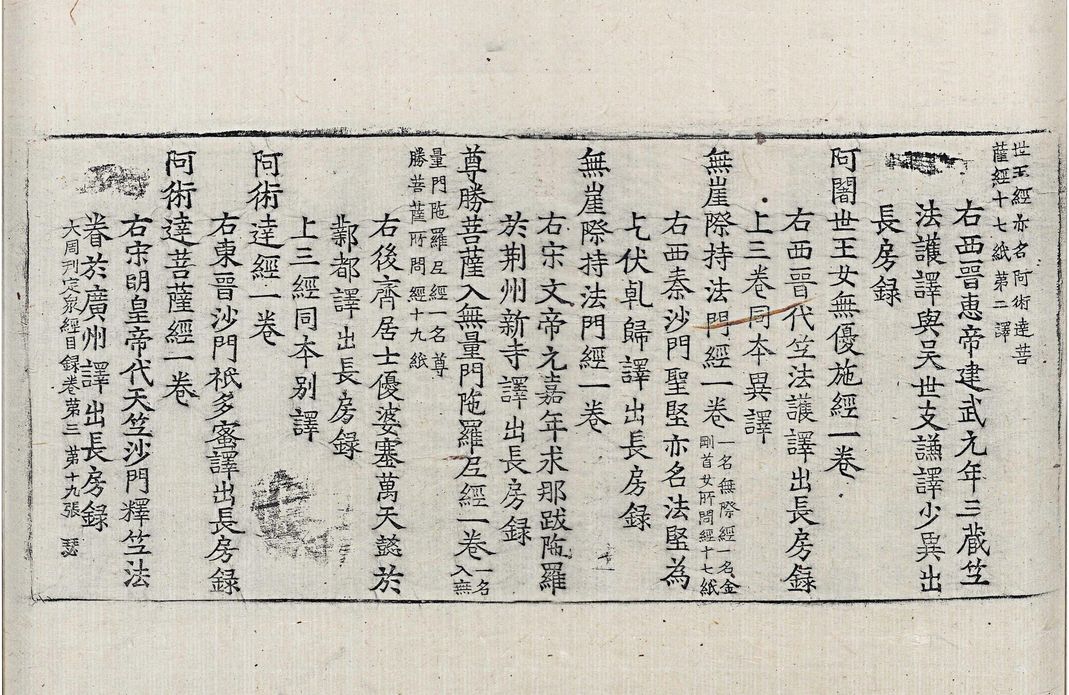 世王經亦名阿術達菩
薩經十七紙第二譯
右西晉惠帝建武元年三藏竺
法護譯與吴世支謙譯少異出
長房録
阿闍世王女無優施經一卷
右西晉代竺法護譯出長房録
上三卷同夲異譯
無崖際持法門經一卷一名無際經一名金
剛首女所問經十七紙
右西秦沙門聖堅亦名法堅為
乞伏乹歸譯出長房録
無崖際持法門經一卷
右宋文帝元嘉年求那跋陁羅
於荆州新寺譯出長房録
尊勝菩薩入無量門陁羅尼經一卷一名
入無
量門陁羅尼經一名尊
勝菩薩所問經十九紙
右後齊居士優婆塞萬天懿於
鄴都譯出長房録
上三經同夲别譯
阿術達經一卷
右東晉沙門祇多蜜譯出長房録
阿術達菩薩經一卷
右宋明皇帝代天竺沙門釋竺法
眷於廣州譯出長房録
大周刋定衆經目録卷第三 第十九張 瑟